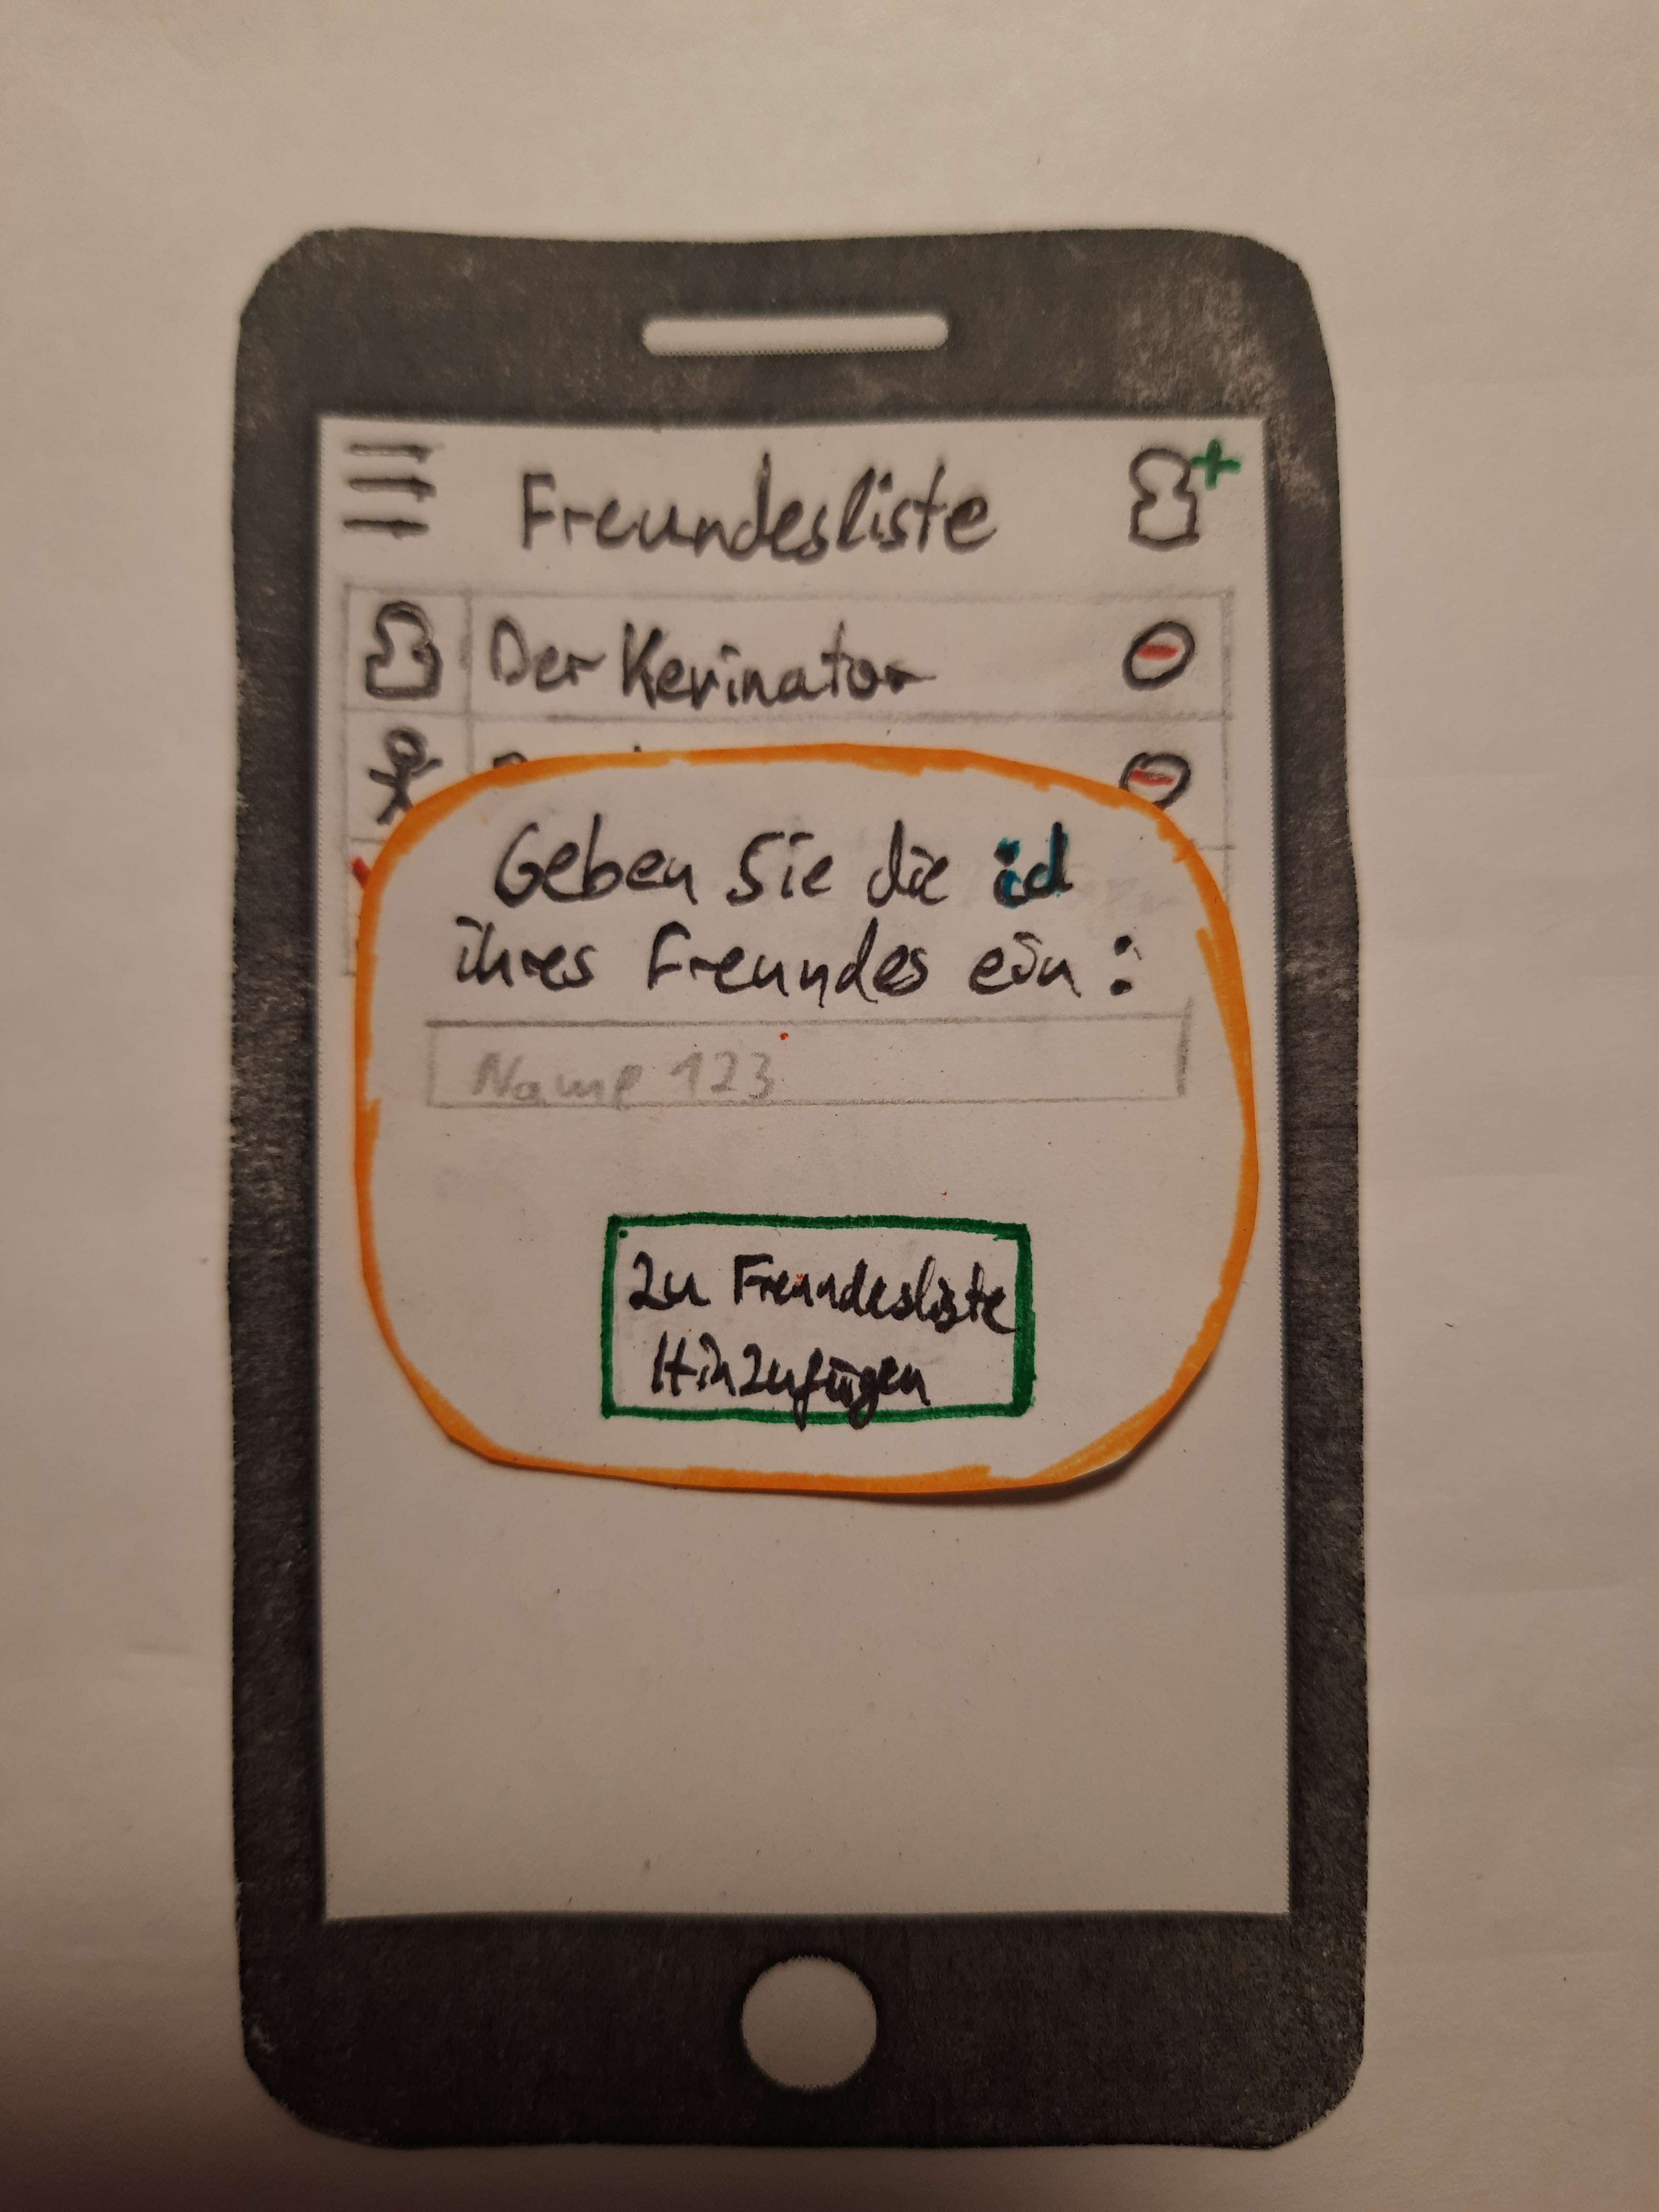 Freundesliste
Der Kevinator
Geben Sie die id
ihres Freundes ein:
Name 123
Zu Freundesliste
Hinzufügen